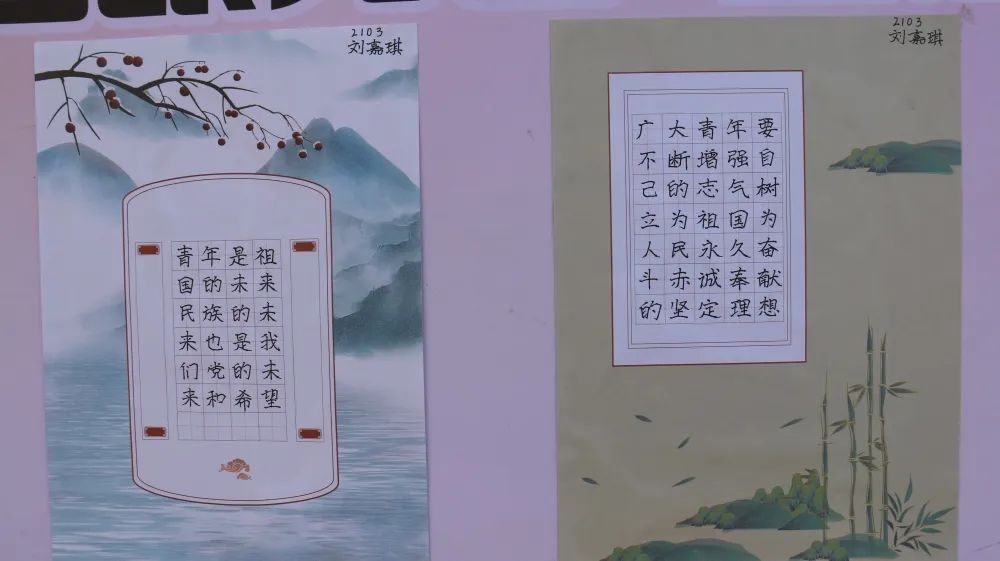 2103
刘嘉琪
青年是祖
国的未来
民族的未
来也是我
们党的未
来和希望
2103
刘嘉琪
广大青年要
不断增强自
己的志气树
立为祖国为
人民永久奋
斗赤诚奉献
的坚定理想